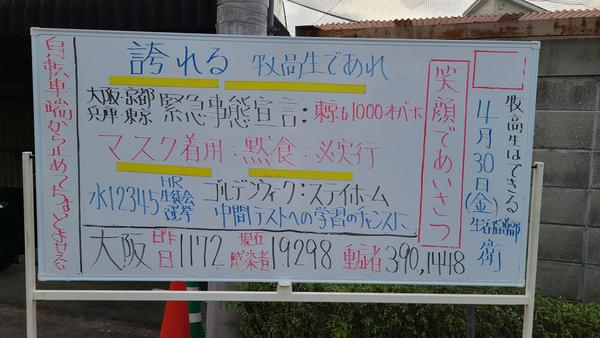 誇れる 牧高生であれ
大阪・京都
兵庫・東京
緊急事態宣言:東京も1000オーバーか
マスク着用:黙食:必実行
水12345
HR
生徒会
選挙
ゴールデンウィーク:ステイホーム
中間テストへの学習のチャンスに
大阪 昨日 1172 現在感染者 19298 重症者 390,1448
笑顔であいさつ
牧高生はできる
4月30日(金)
生活指導部
衛
自転車端から止めてちょっとませる